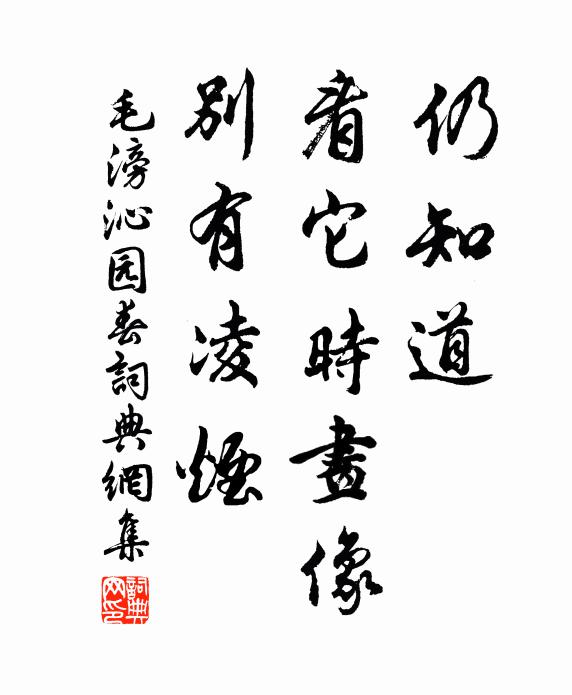 仍知道
看它時畫像
別有凌煙
毛滂沁园春詞典網集
詞典网印